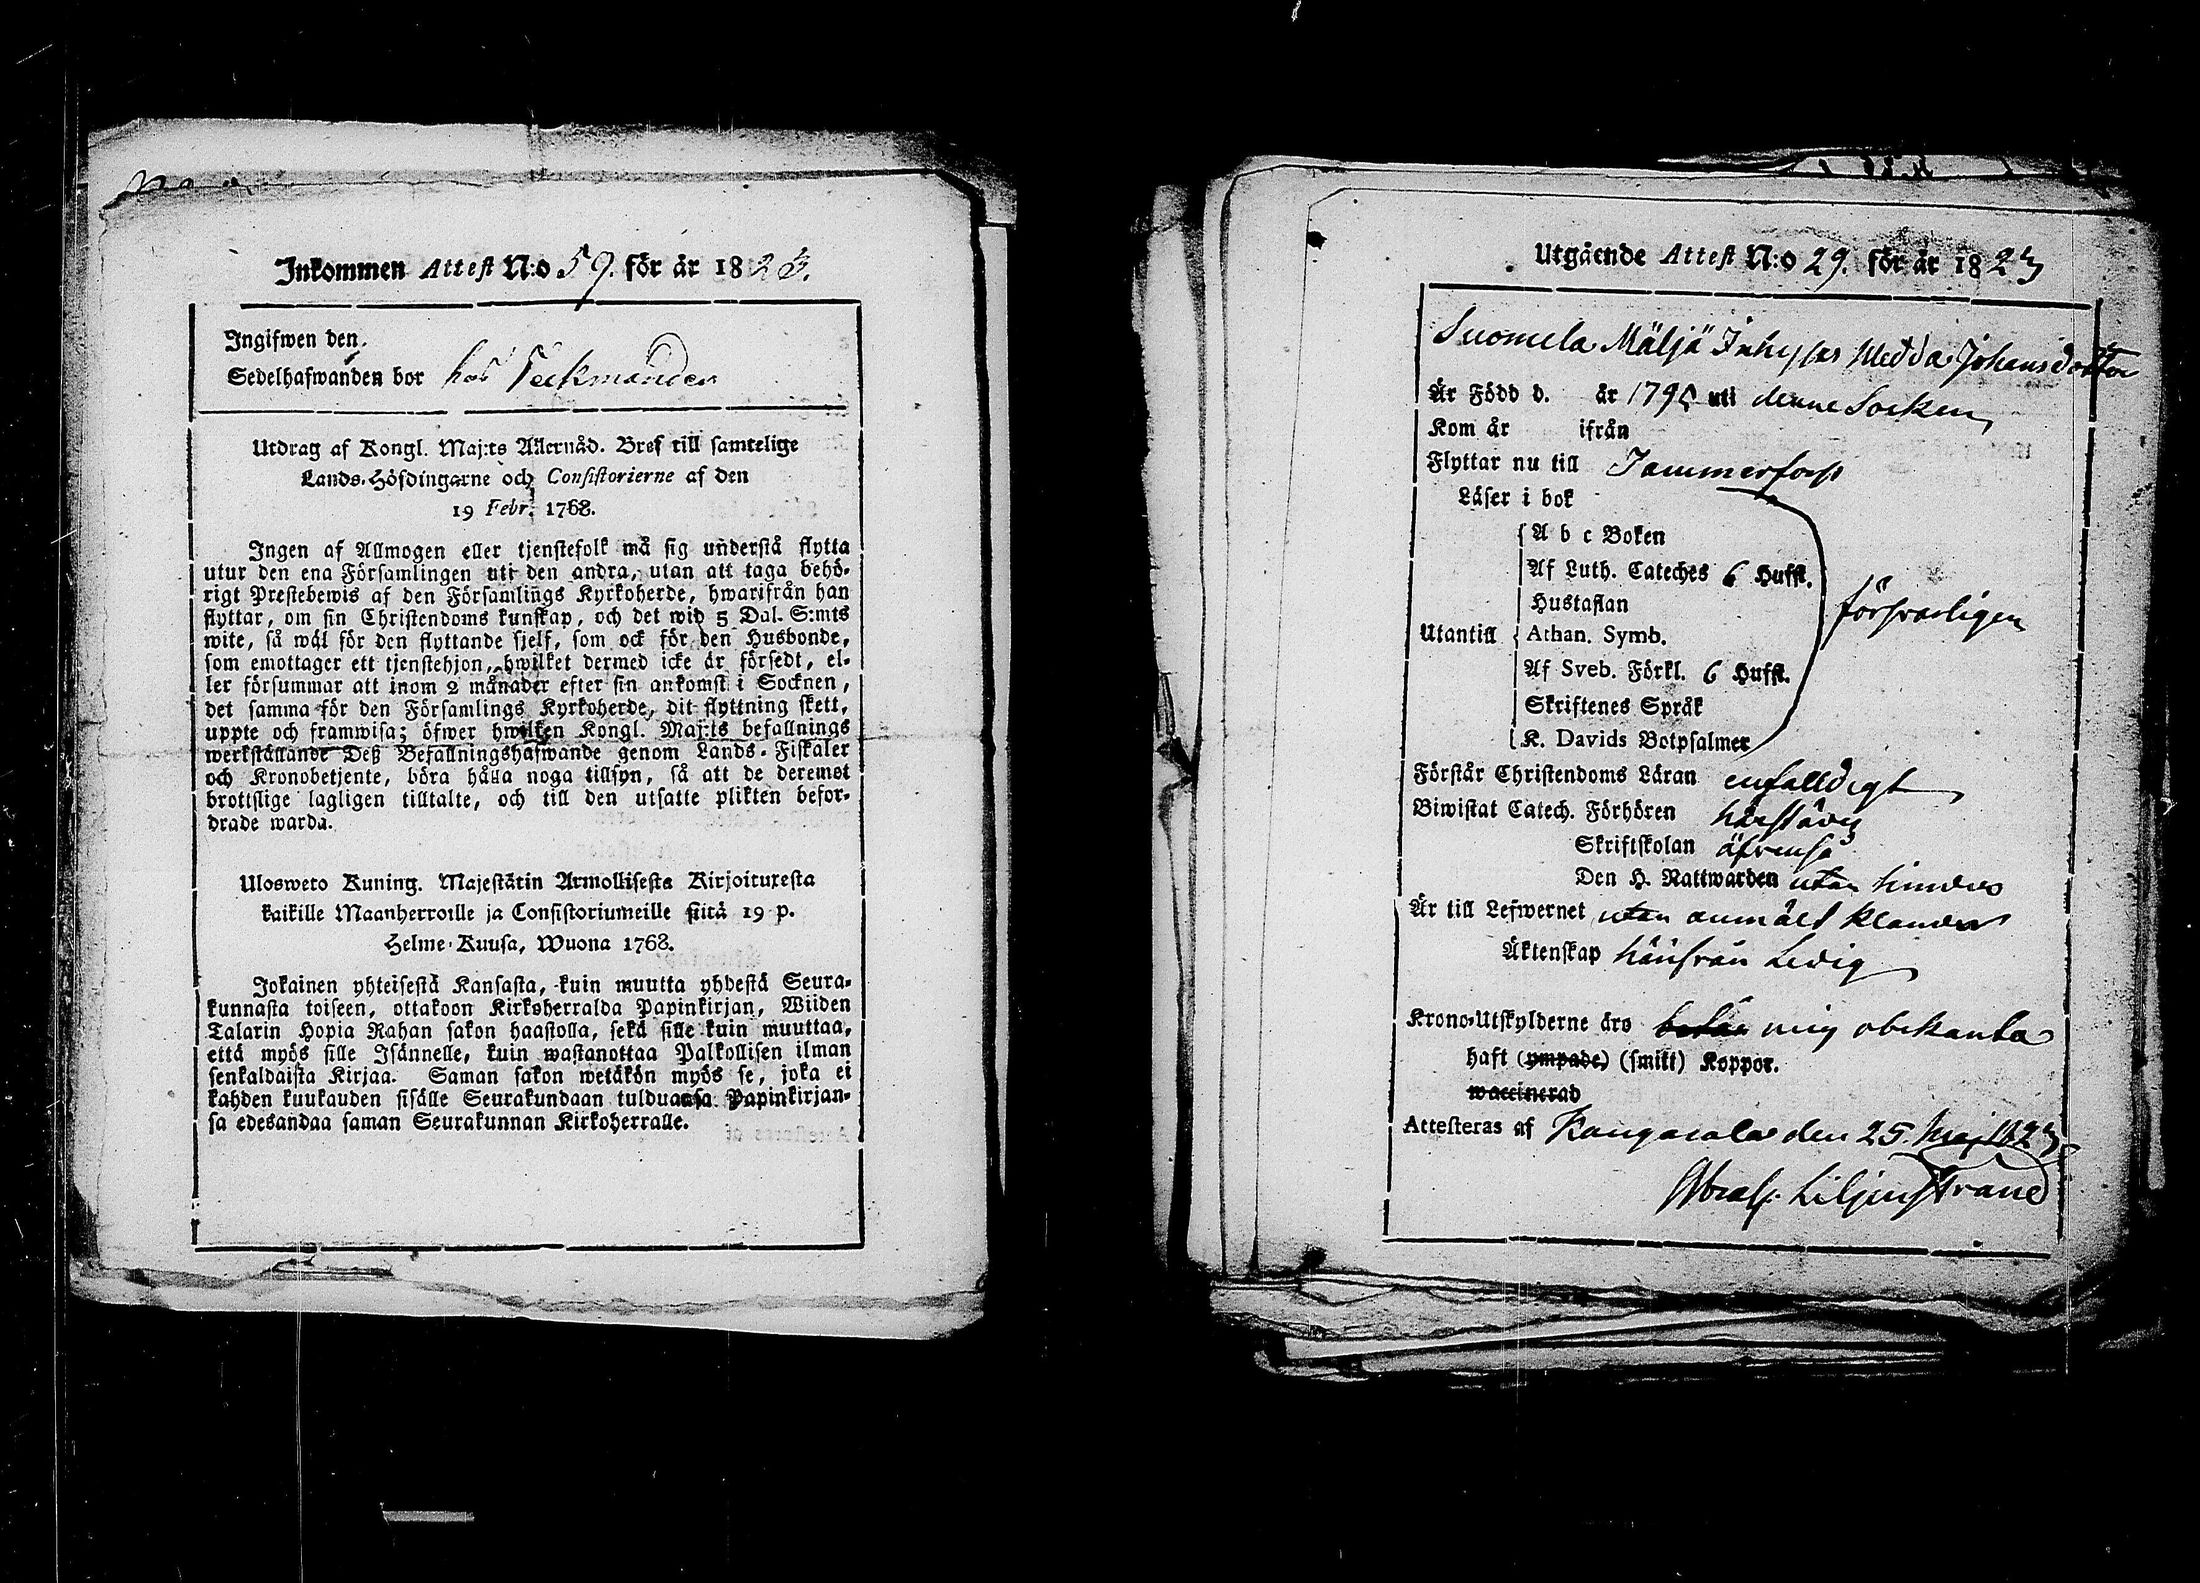 Inkommen Attest N:o 59. för år 1823.
Ingifwen den.
Sedelhafwanden bor hos
Utdrag af Kongl. Maj:ts Allernåd. Bref till samtelige
Lands-Höfdingarne och Consistorierne af den
19 Febr. 1768.
Ingen af Allmogen eller tjenstefolk må sig understå flytta
utur den ena Församlingen uti den andra, utan att taga behö-
rigt Prestebewis af den Församlings Kyrkoherde, hwarifrån han
flyttar, om sin Christendoms kunskap, och det wid 5 Dal. S:mts
wite, så wäl för den flyttande sjelf, som ock för den Husbonde,
som emottager ett tjenstehjon, hwilket dermed icke är försedt, el-
ler försummar att inom 2 månader efter sin ankomst i Socknen,
det samma för den Församlings Kyrkoherde, dit flyttning skett,
uppte och framwisa; öfwer hwilken Kongl. Maj:ts befallnings
werkställande Deß Befallningshafwande genom Lands-Fiskaler
och Kronobetjente, böra hålla noga tillsyn, så att de deremot
brottslige lagligen tilltalte, och till den utsatte plikten befor-
drade warda.
Ulosweto Kuning. Majestätin Armollisesta Kirjoituxesta
kaikille Maanherroille ja Consistoriumeille siitä 19 p.
Helme-Kuusa, Wuona 1768.
Jokainen yhteisestä Kansasta, kuin muutta yhdestä Seura-
kunnasta toiseen, ottakoon Kirkoherralda Papinkirjan, Wiiden
Talarin Hopia Rahan sakon haastolla, sekä sille kuin muuttaa,
että myös sille Isännelle, kuin wastanottaa Palkollisen ilman
senkaldaista Kirjaa. Saman sakon wetäkön myös se, joka ei
kahden kuukauden sisälle Seurakundaan tulduansa Papinkirjan-
sa edesandaa saman Seurakunnan Kirkoherralle.
Utgående Attest N:o 29. för år 1823
Suomela Mäljä Inhyses Hedda Johansdotter
Är Född d. år 1795 uti denne Socken
Kom år ifrån
Flyttar nu till Tammerfors
Läser i bok
A b c Boken
Af Luth. Cateches 6 Hufst.
Hustaflan
Utantill Athan. Symb. försvarligen
Af Sveb. Förkl. 6 Hufst.
Skriftenes Språk
K. Davids Botpsalmer
Förstår Christendoms Läran enfalldigt
Biwistat Catech. Förhören härstädes
Skriftskolan äfvenså
Den H. Nattwarden utan hinder
Är till Lefwernet utan anmält klander
Äktenskap härifrån Ledig
Krono-Utskylderne äro mig obekanta
haft (ympade) (smitt) Koppor.
waccinerad
Attesteras af Kangasala den 25 Maj 1823
Abrah. Liljenstrand